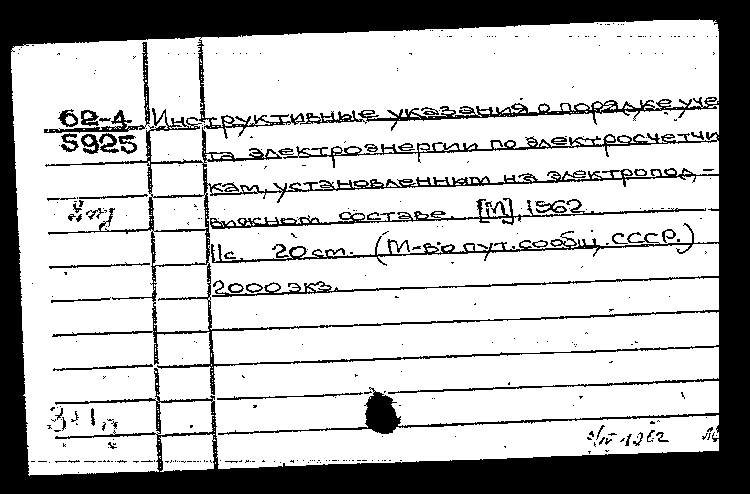 62-4 Инструктивные указания о порядке уче
5925 та электроэнергии по электросчетчи
кам, установленным на электропод -
вижном составе. [М], 1962.
11с. 20 ст. (М-во пут. сообщ. СССР.)
2000 экз.
1962